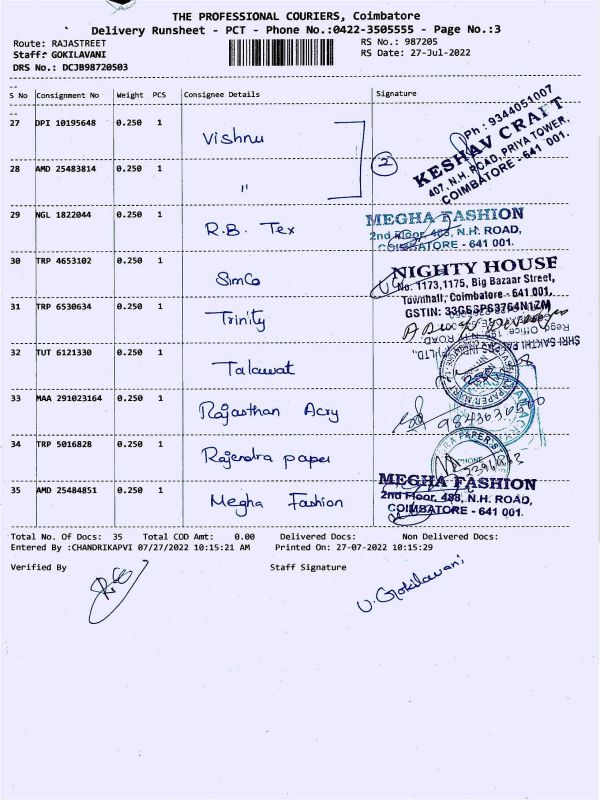 THE PROFESSIONAL COURIERS, Coimbatore
Delivery Runsheet - PCT - Phone No.:0422-3505555 - Page No.:3
Route: RAJASTREET
RS No.: 987205
Staff: GOKILAVANI
RS Date: 27-Jul-2022
DRS No.: DCJB98720503
S No Consignment No Weight PCS Consignee Details Signature
27 DPI 10195648 0.250 1 Vishnu
Ph : 9344051007
KESHAV CRAFT
407, N.H. ROAD, PRIYA TOWER,
COIMBATORE - 641 001.
2
28 AMD 25483814 0.250 1 "
29 NGL 1822044 0.250 1 R.B. Tex
MEGHA FASHION
2nd Floor, 488, N.H. ROAD,
COIMBATORE - 641 001.
30 TRP 4653102 0.250 1 SimCo
NIGHTY HOUSE
No. 1173,1175, Big Bazaar Street,
Townhall, Coimbatore - 641 001.
31 TRP 6530634 0.250 1 Trinity
32 TUT 6121330 0.250 1 Talawat
33 MAA 291023164 0.250 1 Rajasthan Acry
34 TRP 5016828 0.250 1 Rajendra paper
35 AMD 25484851 0.250 1 Megha Fashion
MEGHA FASHION
2nd Floor, 488, N.H. ROAD,
COIMBATORE - 641 001.
Total No. Of Docs: 35 Total COD Amt: 0.00 Delivered Docs: Non Delivered Docs:
Entered By :CHANDRIKAPVI 07/27/2022 10:15:21 AM Printed On: 27-07-2022 10:15:29
Verified By Staff Signature
V. Gokilavani